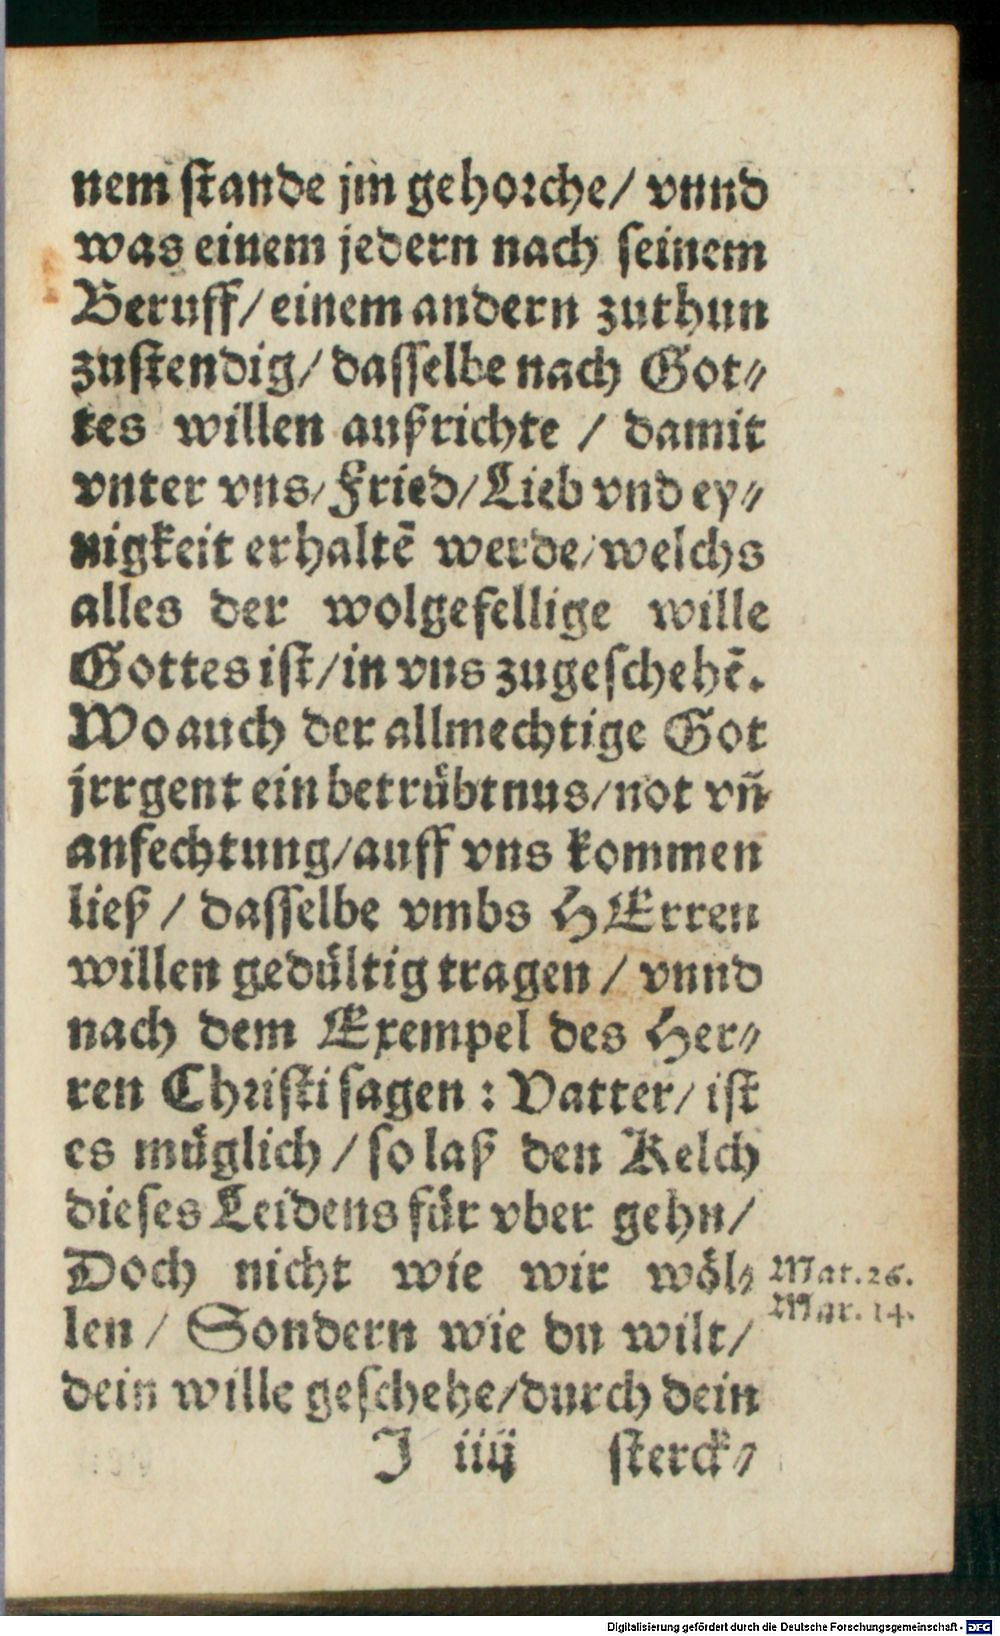 nem ſtande jm gehorche/ vnnd
was einem jedern nach ſeinem
Beruff/ einem andern zuthun
zuſtendig/ daſſelbe nach Got⸗
tes willen außrichte / damit
vnter vns/ Fried/ Lieb vnd ey⸗
nigkeit erhaltē werde/ welchs
alles der wolgefellige wille
Gottes iſt/ in vns zugeſchehē.
Wo auch der allmechtige Got
jrrgent ein betruͤbtnus/ not vn̄
anfechtung/ auff vns kommen
ließ / daſſelbe vmbs HErren
willen geduͤltig tragen / vnnd
nach dem Exempel des Her⸗
ren Chriſti ſagen : Vatter/ iſt
es muͤglich / ſo laß den Kelch
dieſes Leidens fuͤr vber gehn/
Doch nicht wie wir woͤl⸗
len / Sondern wie du wilt/
dein wille geſchehe/ durch dein
Mat. 26.
Mar. 14.
J iiij ſterck⸗
Digitalisierung gefördert durch die Deutsche Forschungsgemeinschaft - DFG